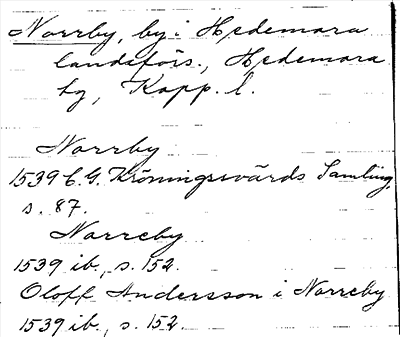 Norrby, by i Hedemora
landsförs., Hedemora
tg, Kopp. l.
Norrby
1539 C. G. Kröningsvärds Samling,
s. 87.
Norreby
1539 ib., s. 152.
Oloff Andersson i Norreby
1539 ib., s. 152.